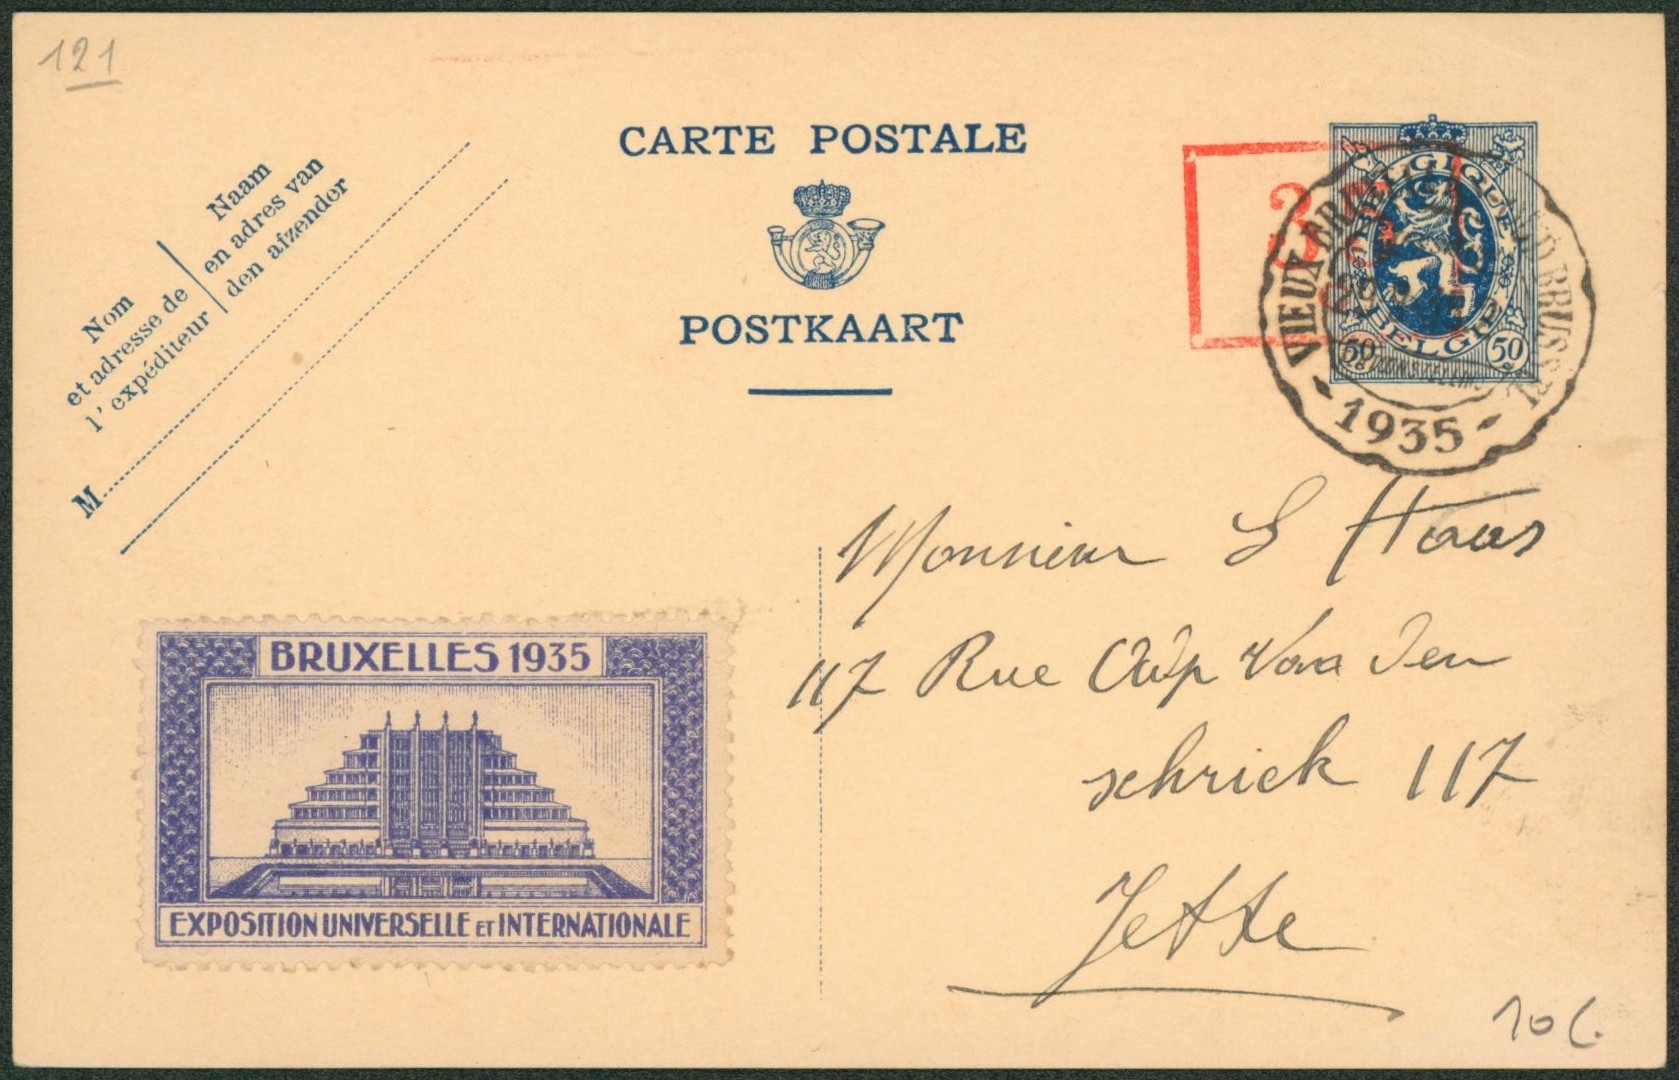 121
CARTE POSTALE
POSTKAART
Nom
et adresse de
l'expéditeur
Naam
en adres van
den afzender
M
BELGIQUE
BELGIE
50 50
VIEUX BRUXELLES OUD BRUSSEL
1935
Monsieur L Haas
117 Rue
schriek 117
Jette
BRUXELLES 1935
EXPOSITION UNIVERSELLE ET INTERNATIONALE
10